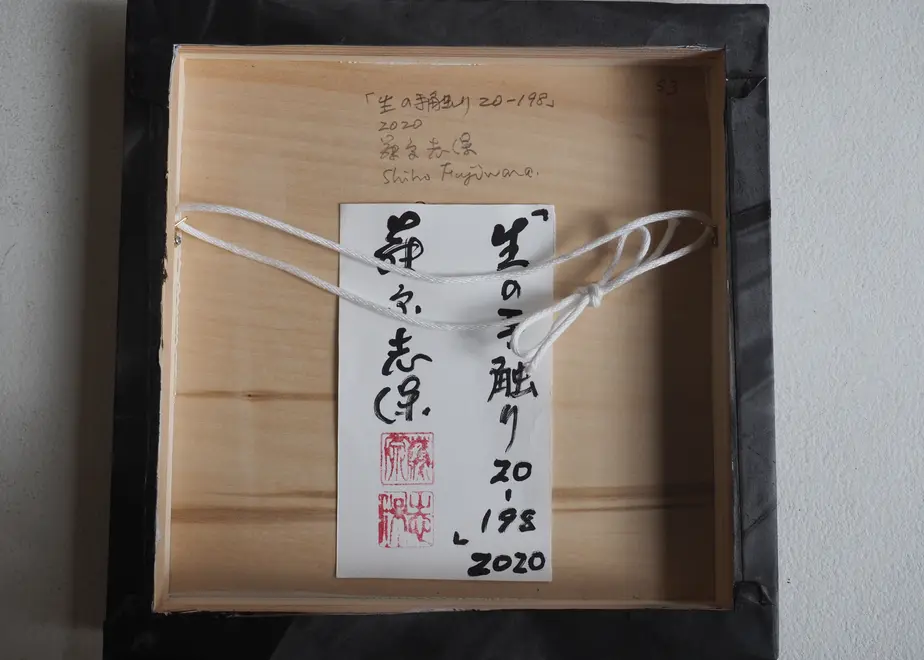 「生の手触り20-198」
2020
藤原志保
Shiho Fujiwara.
S3
「生の手触り20-198」
2020
藤原志保
藤原
志保